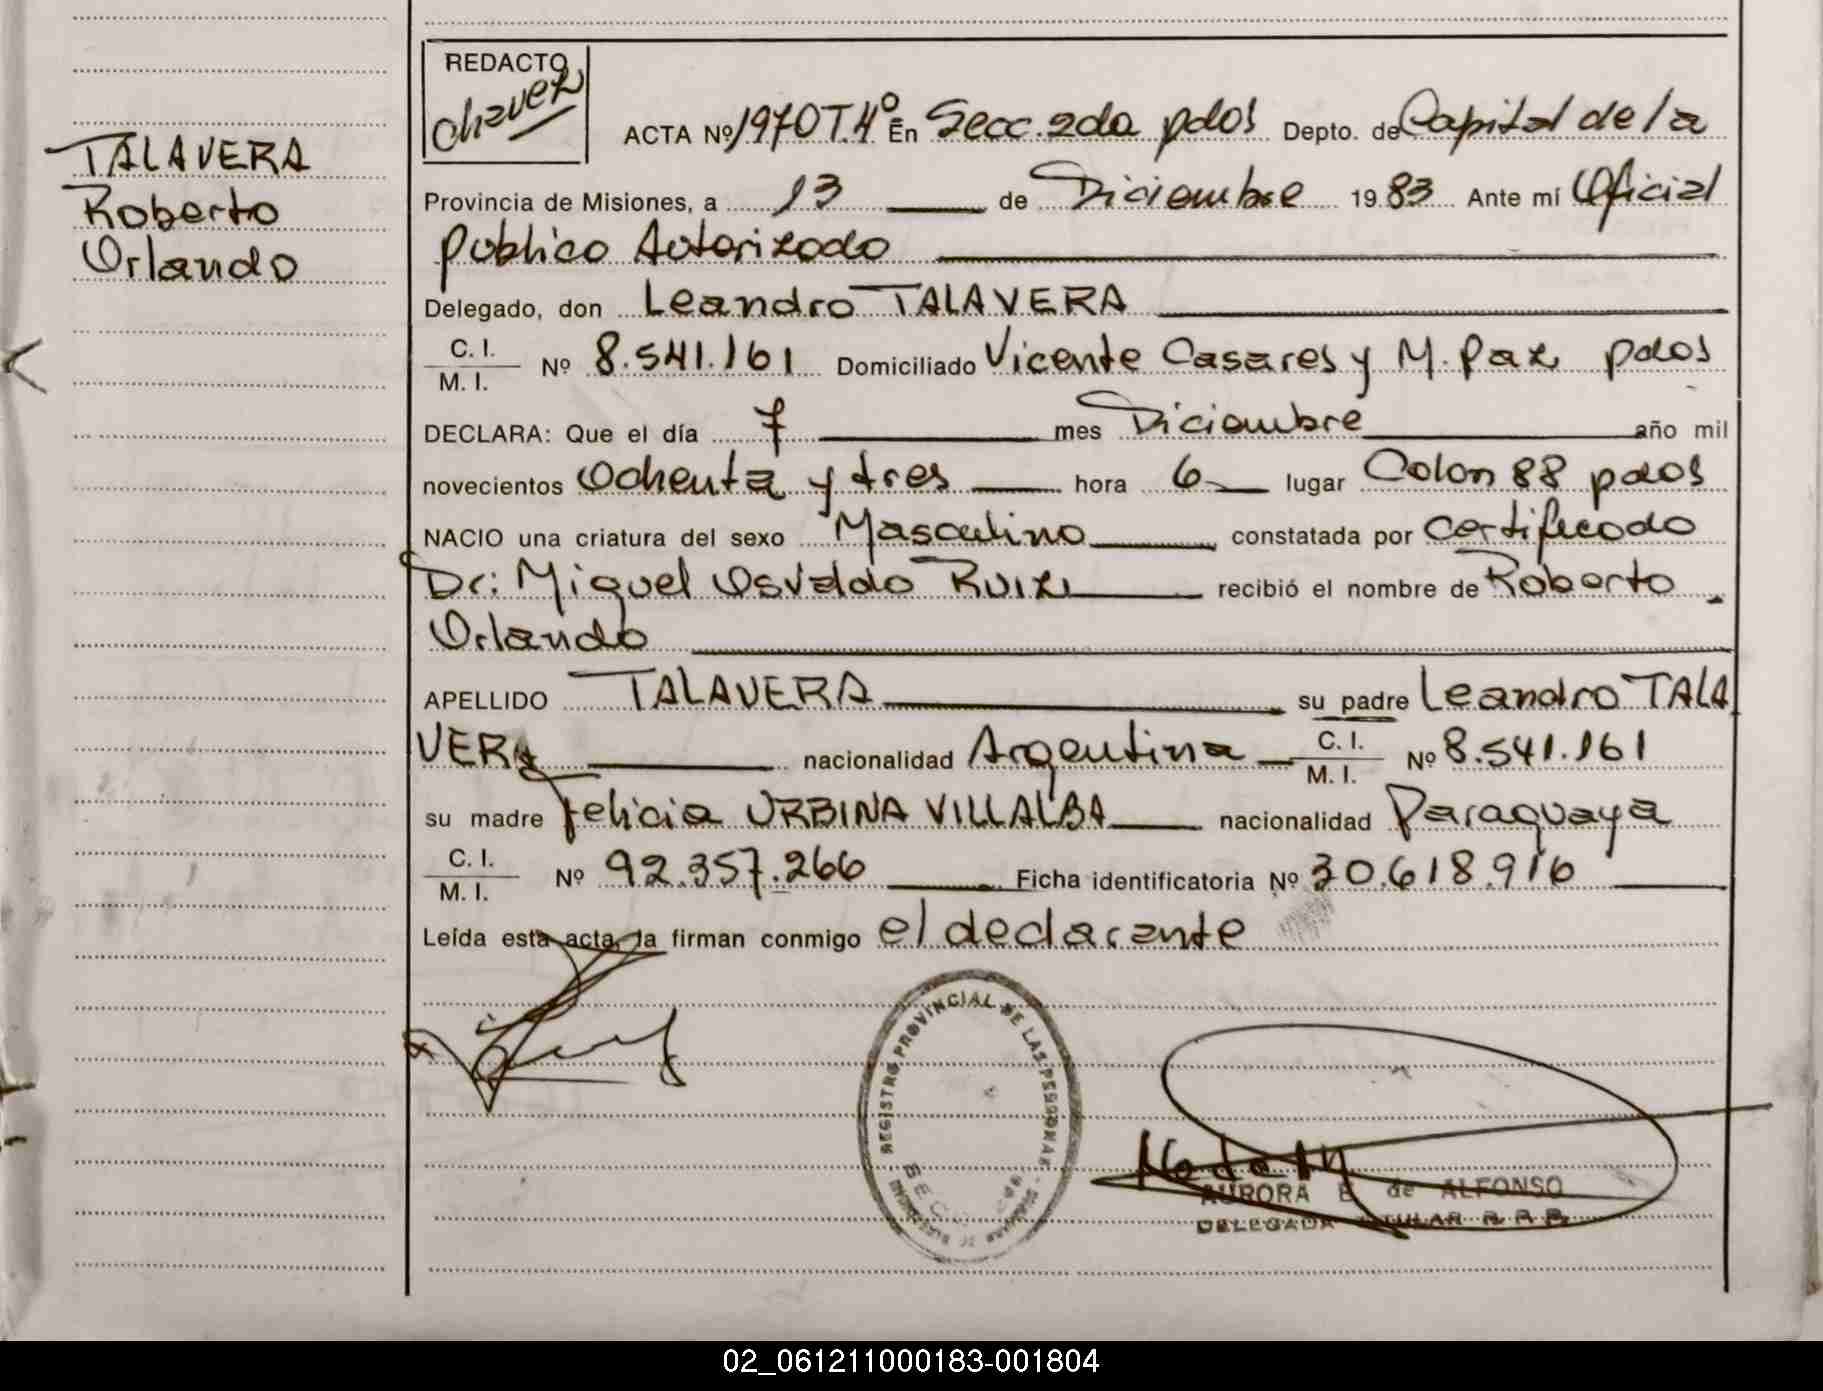 REDACTO
Chavez
TALAVERA
Roberto
Orlando
ACTA Nº 1970 T.4º En Secc. 2da pdas Depto. de Capital de la
Provincia de Misiones, a 13 de Diciembre 1983 Ante mí Oficial
publico Autorizado
Delegado, don Leandro TALAVERA
C. I.
M. I. Nº 8.541.161 Domiciliado Vicente Casares y M. Paz pdas
DECLARA: Que el día 7 mes Diciembre año mil
novecientos Ochenta y tres hora 6 lugar Colon 88 pdas
NACIO una criatura del sexo Masculino constatada por certificado
Dr: Miguel Osvaldo Ruiz recibió el nombre de Roberto
Orlando
APELLIDO TALAVERA su padre Leandro TALA
VERA nacionalidad Argentina C. I.
M. I. Nº 8.541.161
su madre Felicia URBINA VILLALBA nacionalidad Paraguaya
C. I.
M. I. Nº 92.357.266 Ficha identificatoria Nº 30.618.916
Leída esta acta, la firman conmigo el declarante
REGISTRO PROVINCIAL DE LAS PERSONAS
AURORA E de ALFONSO
DELEGADA TITULAR R P P
02_061211000183-001804